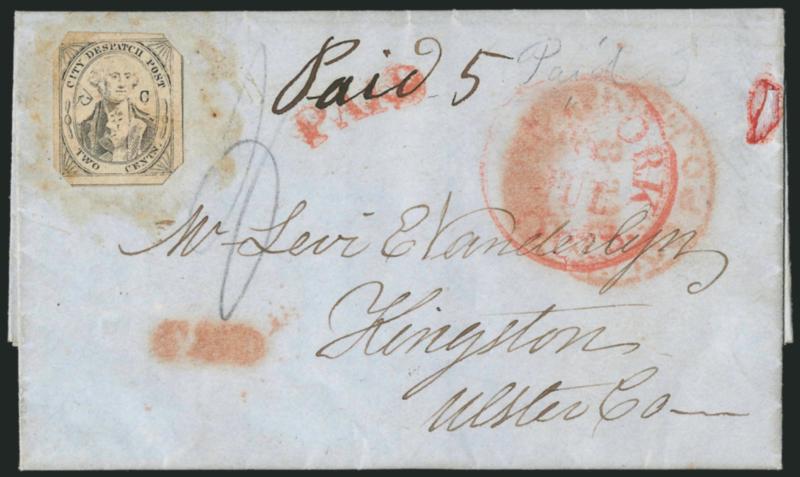 CITY DESPATCH POST
C
TWO CENTS
Paid 5
Paid
PAID
YORK
Mr Levi E Vanderlyn
Kingston
Ulster Co